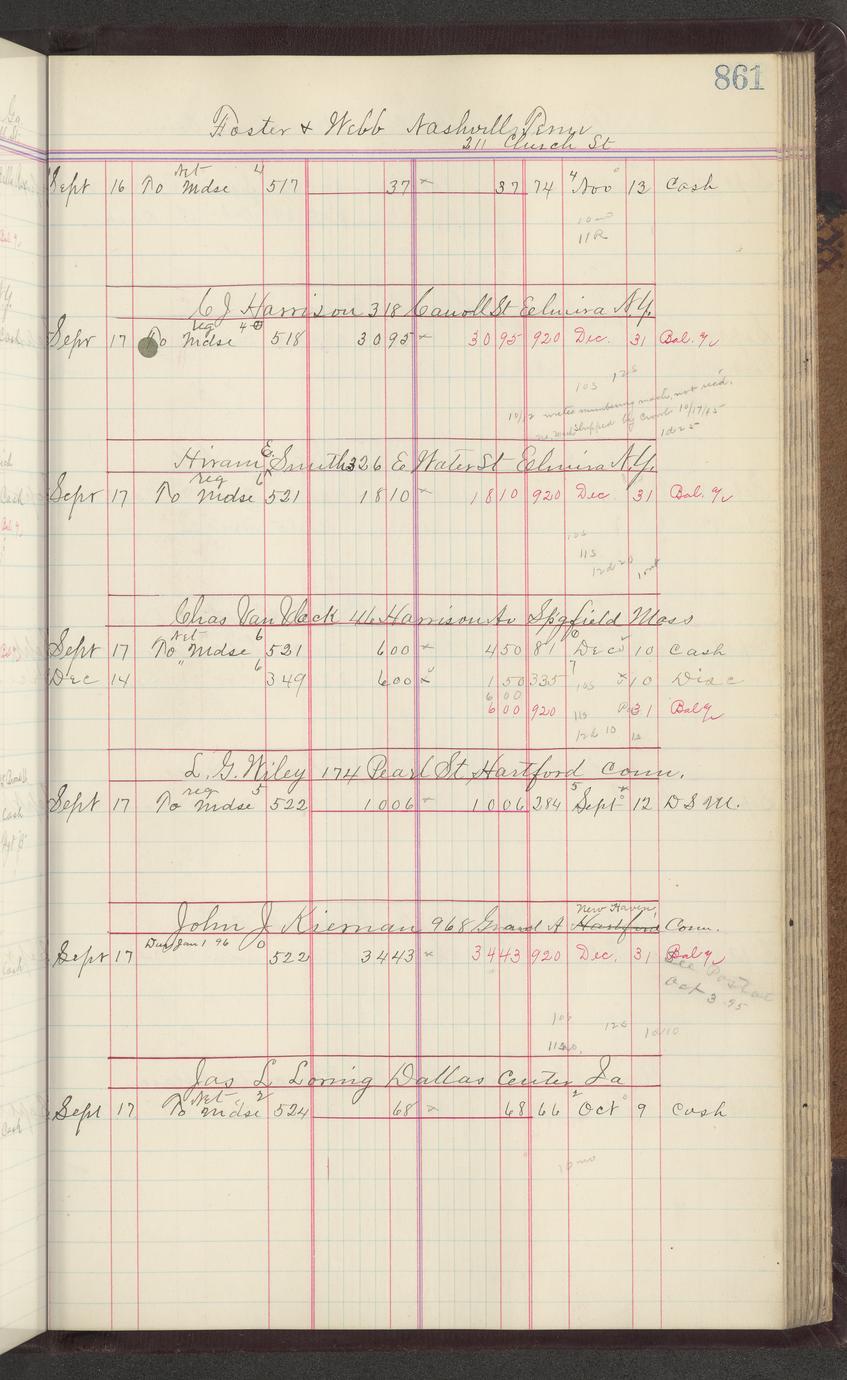 861
Foster & Webb Nashville, Tenn
211 Church St
Net 4
Sept 16 To Mdse 517 37 37 74 4 Nov 13 Cash
C J Harrison 318 Carroll St Eelmira N.Y.
reg 40
Sept 17 To Mdse 518 30 95 30 95 920 Dec. 31 Bal. %
10S 12S
10/12 writes numbering mach. not rec'd.
Shipped by Comb 10/17/95
Hiram E. Smith 326 E Water St Eelmira N.Y.
reg 6
Sept 17 To Mdse 521 18 10 18 10 920 Dec 31 Bal. %
10S
11S
12d20
Chas Van Vleck 46 Harrison Av Spgfield Mass
Net 6
Sept 17 To Mdse 521 6 00 4 50 81 6 Dec 10 Cash
Dec 14 " 6 349 6 00 1 50 335 7 10S 10 Disc
6 00
6 00 920 11S 31 Bal %
12d 10
L. G. Wiley 174 Pearl St Hartford Conn.
reg 5
Sept 17 To Mdse 522 10 06 10 06 284 5 Sept 12 D S M.
New Haven,
John J Kiernan 968 Grand A Hartford Conn.
Due Jan 1 96 0
Sept 17 522 34 43 34 43 920 Dec. 31 Bal %
See Postal
Oct 3 95
10S 12S 10/10
Jas L Loring Dallas Center Ia
Net 2
Sept 17 To Mdse 524 68 68 66 2 Oct 9 Cash
10 mo